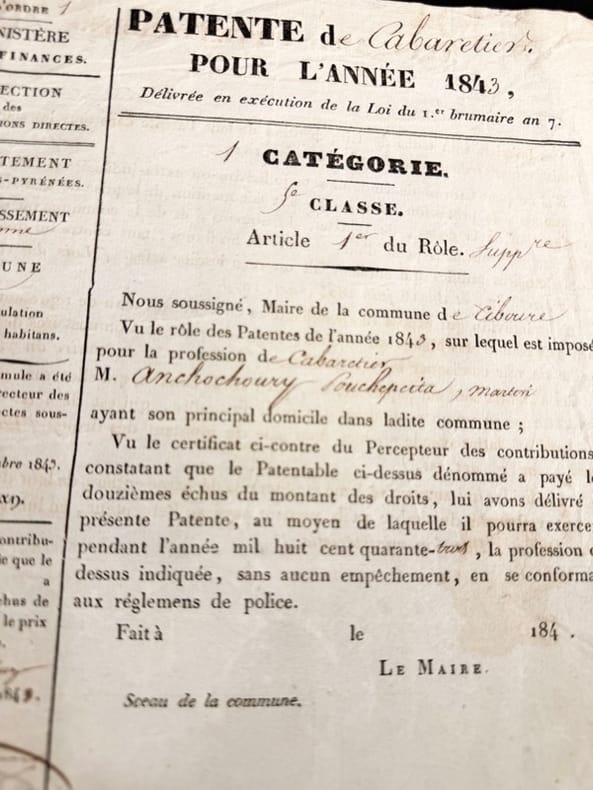 'ORDRE 1
NISTÈRE
FINANCES.
ECTION
des
IONS DIRECTES.
TEMENT
S-PYRÉNÉES.
SSEMENT
UNE
ulation
habitans.
mule a été
recteur des
ectes sous-
bre 1843.
ontribu-
ie que le
a
chus de
le prix
1843.
PATENTE de Cabaretier.
POUR L'ANNÉE 1843,
Délivrée en exécution de la Loi du 1.er brumaire an 7.
1 CATÉGORIE.
5e CLASSE.
Article 1er du Rôle. Suppre
Nous soussigné, Maire de la commune de Ciboure
Vu le rôle des Patentes de l'année 1843, sur lequel est imposé
pour la profession de Cabaretier
M. Anchochoury , martin
ayant son principal domicile dans ladite commune ;
Vu le certificat ci-contre du Percepteur des contributions
constatant que le Patentable ci-dessus dénommé a payé l
douzièmes échus du montant des droits, lui avons délivré
présente Patente, au moyen de laquelle il pourra exerce
pendant l'année mil huit cent quarante-trois, la profession c
dessus indiquée, sans aucun empêchement, en se conforma
aux réglemens de police.
Fait à le 184 .
LE MAIRE.
Sceau de la commune.